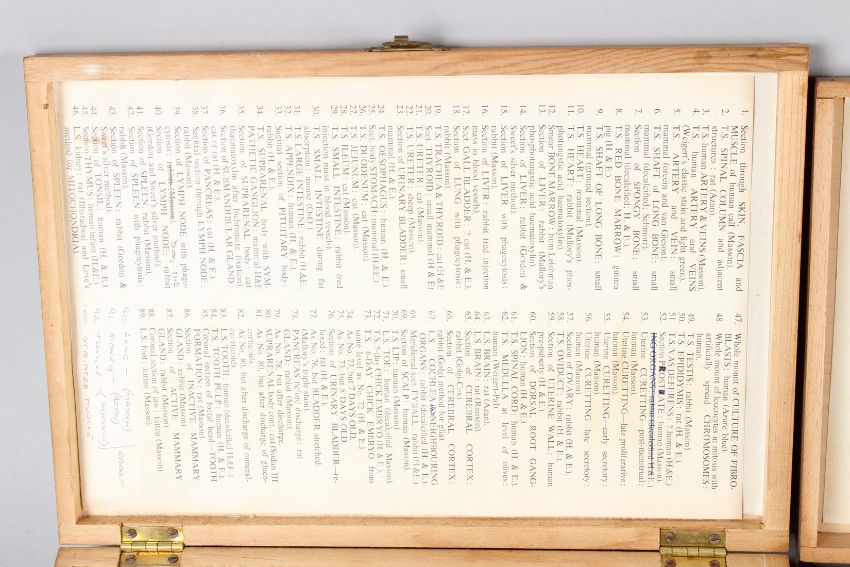 1. Section through SKIN, FASCIA and
MUSCLE of human calf (Masson).
2. T.S. SPINAL COLUMN and adjacent
structures : rat (Azan).
3. T.S. human ARTERY & VEINS (Masson).
4. T.S. human ARTERY and VEINS
(Weigert's elastic stain and light green).
5. T.S. ARTERY and VEIN : small
mammal (orcein and van Gieson).
6. T.S. SHAFT OF LONG BONE : small
mammal (ground, unstained, dry).
7. Section of SPONGY BONE : small
mammal (decalcified, H. & E.).
8. T.S. RED BONE MARROW : guinea
pig (H. & E.).
9. T.S. SHAFT OF LONG BONE : small
mammal
10. T.S. HEART : mammal (Masson).
11. T.S. HEART : rabbit (Mallory's phos-
photungstic acid haematoxylin).
12. Smear BONE MARROW : from Leishman
13. Section of LIVER : rabbit (Mallory's
phosphotungstic acid haematoxylin).
14. Section of LIVER : rabbit (Gordon &
Sweet's silver method).
15. Section of LIVER with phagocytosis :
rabbit (Masson).
16. Section of LIVER : rabbit (red injection
mass in blood vessels).
17. Sect. GALL BLADDER : ? cat (H. & E.).
18. Section of LUNG with phagocytosis :
rabbit (Masson).
19. T.S. TRACHEA & THYROID : cat (H.&E.
20. Sect. THYROID : small mammal (H & E)
21. T.S. URETER : cat (Masson).
22. T.S. URETER : sheep (Masson).
23. Section of URINARY BLADDER : small
mammal (H. & E.).
24. T.S. OESOPHAGUS : human (H. & E.).
25. Sect. body STOMACH : mammal (H.&E.).
26. T.S. DUODENUM : cat (Masson).
27. T.S. JEJUNUM : cat (Masson).
28. T.S. ILEUM : cat (Masson).
29. T.S. SMALL INTESTINE : rabbit (red
injection mass in blood vessels).
30. T.S. SMALL INTESTINE during fat
absorption : mouse (OsO4).
31. T.S. LARGE INTESTINE : rabbit (H.&E.).
32. T.S. APPENDIX : human (H. & E.).
33. Sagittal section of PITUITARY body :
human (H. & E.).
34. T.S. SUPRARENAL body with SYM-
PATHETIC GANGLION : mammal (H&E
35. Section of SUPRARENAL body : cat
(haematoxylin after bichromate fixation).
36. Section of SUBMAXILLARY GLAND :
cat or rat (H. & E.).
37. Section of PANCREAS : cat (H. & E.).
38. Section through LYMPH NODE :
rabbit (Masson).
39. Section of LYMPH NODE with phago-
cytosis : rabbit (Masson).
40. Section of LYMPH NODE : rabbit
(Gordon and Sweet's silver method).
41. Section of SPLEEN : rabbit (Masson).
42. Section of SPLEEN with phagocytosis :
rabbit (Masson).
43. Section of SPLEEN : rabbit (Gordon &
Sweet's silver method).
44. Section of TONSIL : human (H. & E.).
45. Section of THYMUS : human foetus (H.&E.)
46. L.S. kidney : rat (Hirschler and Love's
method for MITOCHONDRIA).
47. Whole mount of CULTURE OF FIBRO-
BLASTS : human (Azure blue).
48. Whole mount of leucocytes in mitosis with
artificially spread CHROMOSOMES :
human.
49. T.S. TESTIS : rabbit (Masson)
50. T.S. EPIDIDYMIS : rat (H. & E.).
51. T.S. VAS DEFERENS : ? human (H.&E.)
52. Section PROSTATE : human (Masson).
53. Uterine CURETTING—post-menstrual :
human (Masson).
54. Uterine CURETTING—late proliferative :
human (Masson).
55. Uterine CURETTING—early secretory :
human (Masson).
56. Uterine CURETTING—late secretory :
human (Masson).
57. Section of OVARY : rabbit (H. & E.).
58. T.S. OVIDUCT : human (H. & E.).
59. Section of UTERINE WALL : human
pre-puberty (H. & E.).
60. Section of DORSAL ROOT GANG-
LION : human (H. & E.).
61. T.S. SPINAL CORD : human (H. & E.).
62. T.S. MEDULLA at the level of olives :
human (Weigert-Pal).
63. T.S. BRAIN : rat (Azan).
64. L.S. BRAIN : rat (Masson).
65. Section of CEREBRAL CORTEX :
rabbit (Golgi-Cox).
66. Section of CEREBRAL CORTEX :
rabbit (Golgi method for glia)
67. T.S. COCHLEA and NEIGHBOURING
ORGANS : rat, decalcified (H. & E.).
68. Meridional sect. EYEBALL : rabbit (H&E
69. Section of SCALP : human (Masson).
70. T.S. LIP : human (Masson).
71. T.S. TOE : human (decalcified Masson).
72. T.S. 3-day CHICK EMBRYO (H. & E.).
73. T.S. 4-DAY CHICK EMBRYO from
same level as No. 72 (H. & E.).
74. As No. 73, but 6 DAYS OLD.
75. As No. 73, but 8 DAYS OLD.
76. Section of URINARY BLADDER—re-
laxed : rat (H. & E.).
77. As No. 76, but BLADDER stretched.
78. PAROTID before discharge : rat
GLAND : rabbit (Masson).
79. As No. 78, but after discharge.
80. SUPRARENAL body cort. : cat (Sudan III
81. As No. 80, but after discharge of gluco-
corticoids.
82. As No. 80, but after discharge of mineral-
corticoids.
83. T.S. TOOTH : human (decalcified H.&E.)
84. T.S. TOOTH PULP : human (H. & E.).
85. Coronal section of tooth —TOOTH
FORMATION : (H. & E.).
86. Section of INACTIVE MAMMARY
GLAND : rabbit (Masson).
87. Section of ACTIVE MAMMARY
GLAND : rabbit (Masson).
88. Coronal section of jaw : kitten (Masson)
89. L.S. foot : kitten (Masson).
90 LUNG (MASSON) RABBIT
91. KIDNEY (AZAN)
92. TONGUE (MASSON)